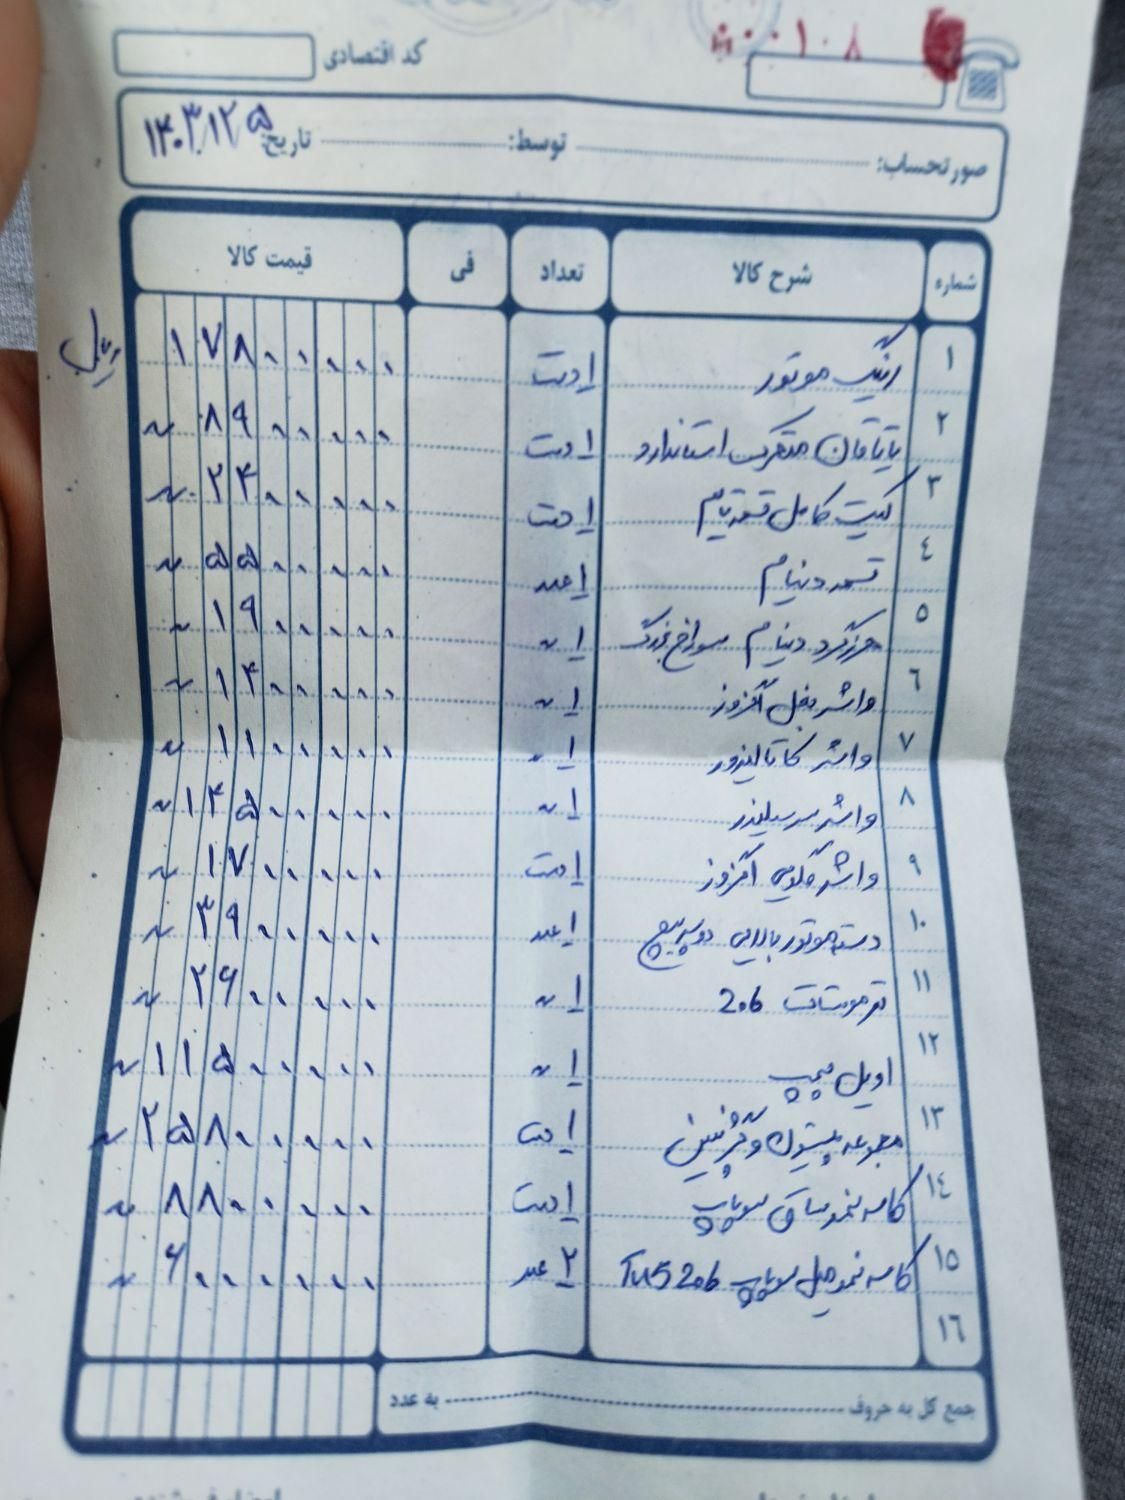 ۰۰۱۰۸
کد اقتصادی
صورتحساب: توسط: تاریخ: ۱۴۰۳/۱۲/۵
شماره شرح کالا تعداد فی قیمت کالا
۱ رینگ موتور ۱ دست ۱۷۸۰۰۰۰۰ ریال
۲ یاتاقان متحرک استاندارد ۱ دست ۸۹۰۰۰۰۰ ~
۳ کیت کامل تسمه تایم ۱ دست ۲۴۰۰۰۰۰۰ ~
۴ تسمه دینام ۱ عدد ۵۵۰۰۰۰۰ ~
۵ هرزگرد دینام سوراخ بزرگ ۱ ~ ۱۹۰۰۰۰۰ ~
۶ واشر بغل اگزوز ۱ ~ ۱۴۰۰۰۰۰ ~
۷ واشر کاتالیزور ۱ ~ ۱۱۰۰۰۰۰ ~
۸ واشر سرسیلندر ۱ ~ ۱۴۵۰۰۰۰۰ ~
۹ واشر گلویی اگزوز ۱ دست ۱۷۰۰۰۰۰ ~
۱۰ دسته موتور بارانی دو سر پیچ ۱ عدد ۳۹۰۰۰۰۰ ~
۱۱ ترموستات 206 ۱ ~ ۲۹۰۰۰۰۰ ~
۱۲ اویل پمپ ۱ ~ ۱۱۵۰۰۰۰۰ ~
۱۳ مجموعه پیستون و گژنپین ۱ دست ۲۵۸۰۰۰۰۰ ~
۱۴ کاسه نمد ساق سوپاپ ۱ دست ۸۸۰۰۰۰۰ ~
۱۵ کاسه نمد میل سوپاپ 206 TU5 ۲ عدد ۶۰۰۰۰۰۰ ~
۱۶
جمع کل به حروف به عدد